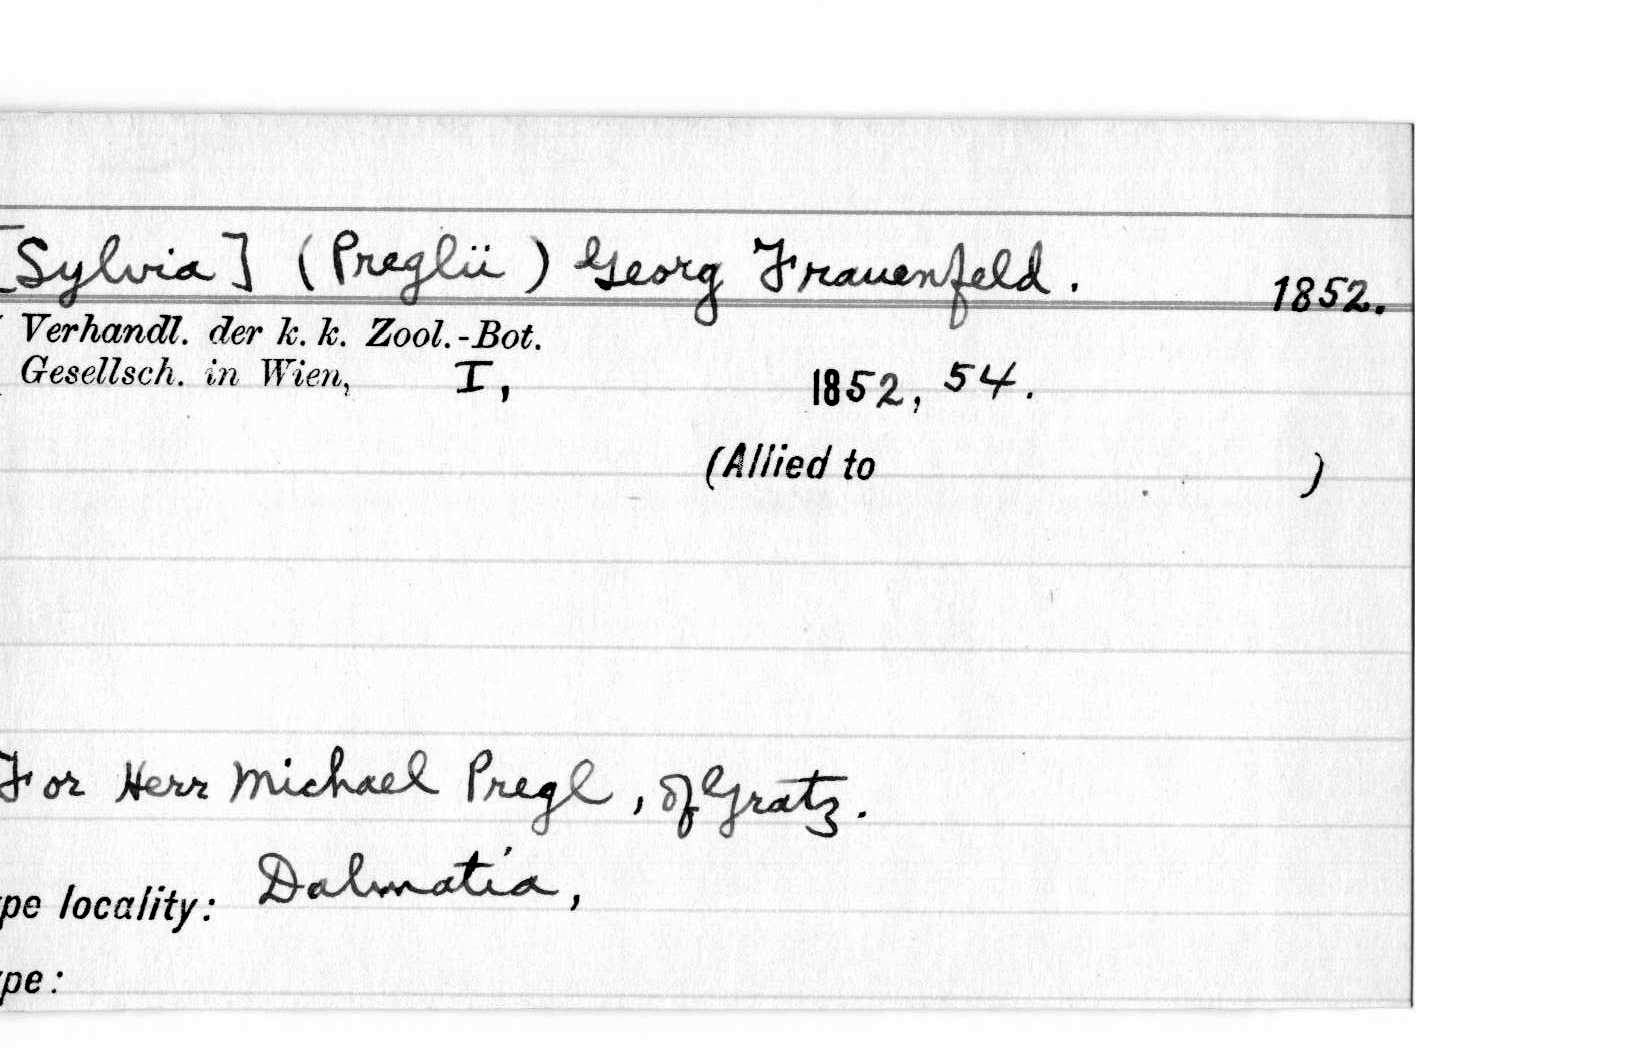 [Sylvia] (Preglii) Georg Frauenfeld. 1852.
Verhandl. der k. k. Zool.-Bot.
Gesellsch. in Wien, I, 1852, 54.
(Allied to )
For Herr Michael Pregl, of Gratz.
pe locality: Dalmatia,
pe: